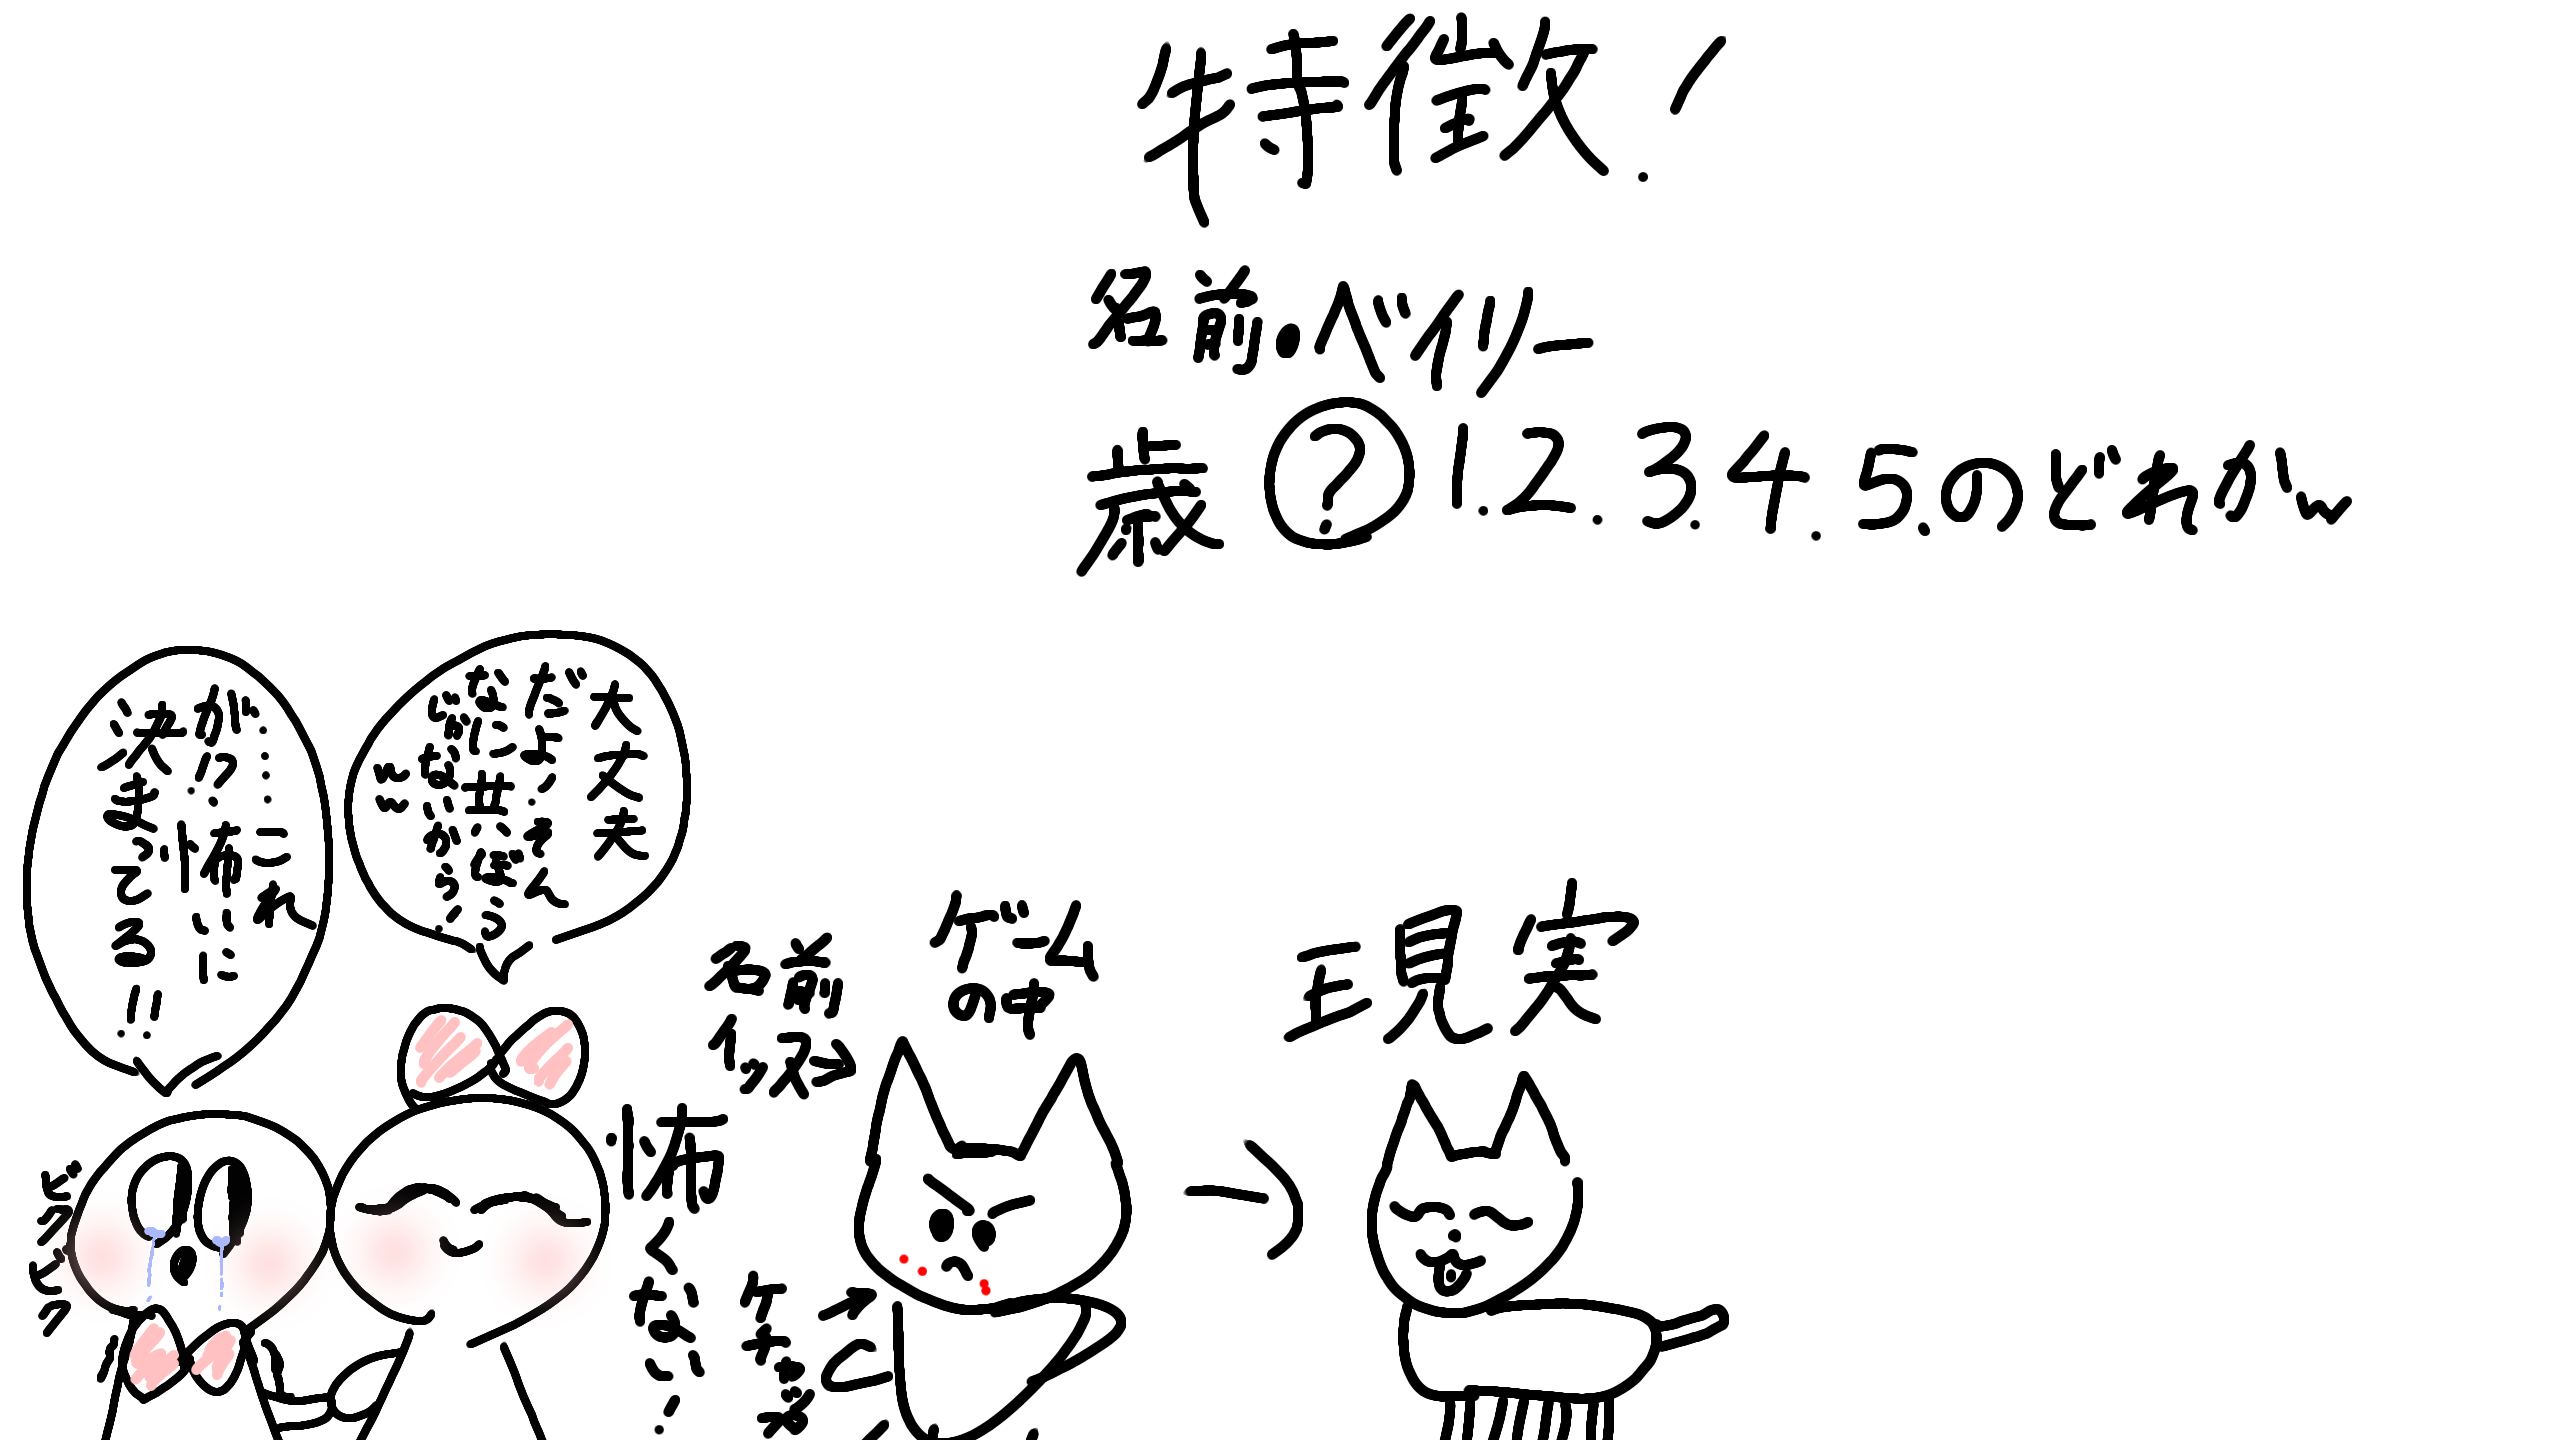 特徴!
名前•ベイリー
歳 ? 1.2.3.4.5.のどれかw
大丈夫
だよ!そん
なに共いぼう
じゃないから!
ww
が……これ
がっ!怖いに
決まってる!!
ゲーム
の中
現実
名前
イッヌ→
怖くない!
ケチャップ
ビクビク